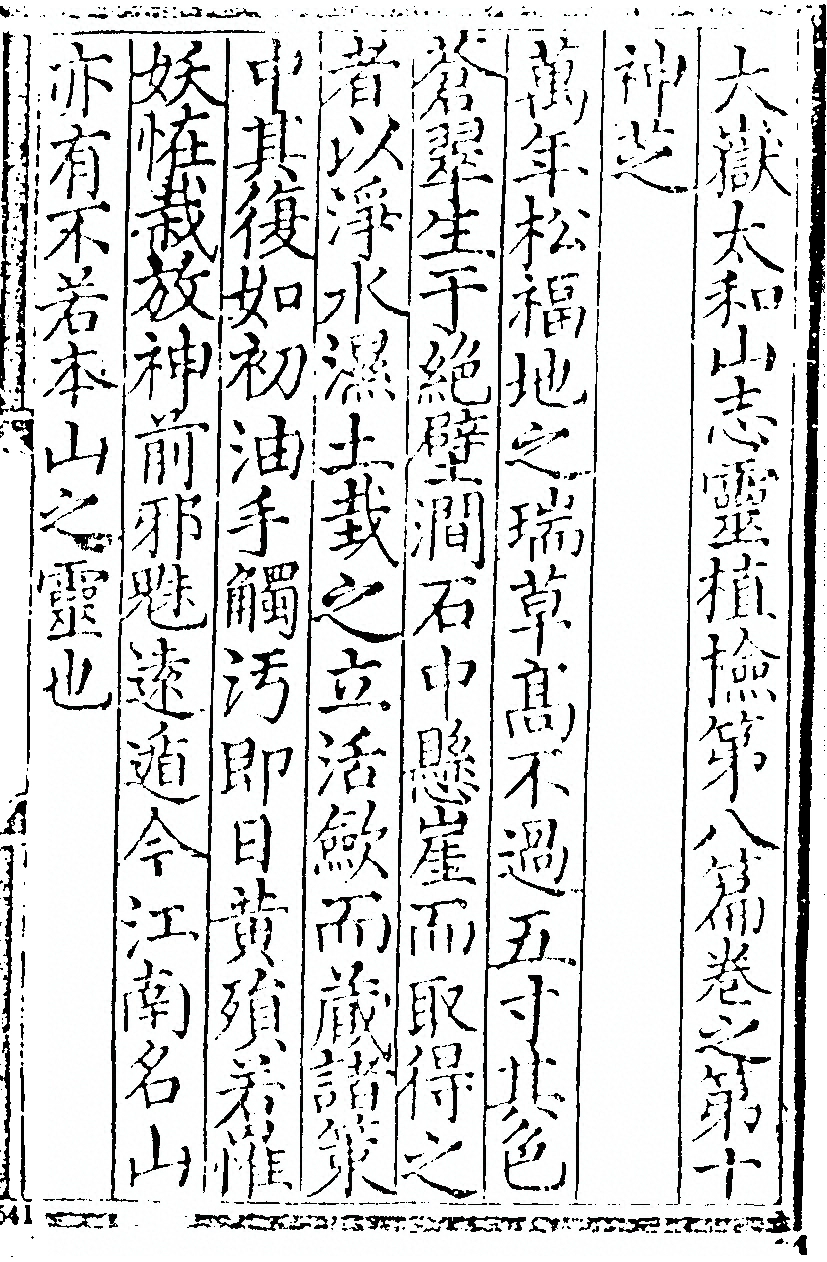 大嶽太和山志靈植檢第八篇卷之第十
神芝
萬年松福地之瑞草高不過五寸其色
蒼翠生于絕壁澗石中懸崖而取得之
者以淨水濕土栽之立活歛而蔵諸篋
中其復如初油手觸污即日黄殞若罹
妖怪栽放神前邪魅逺遁今江南名山
亦有不若本山之靈也
641